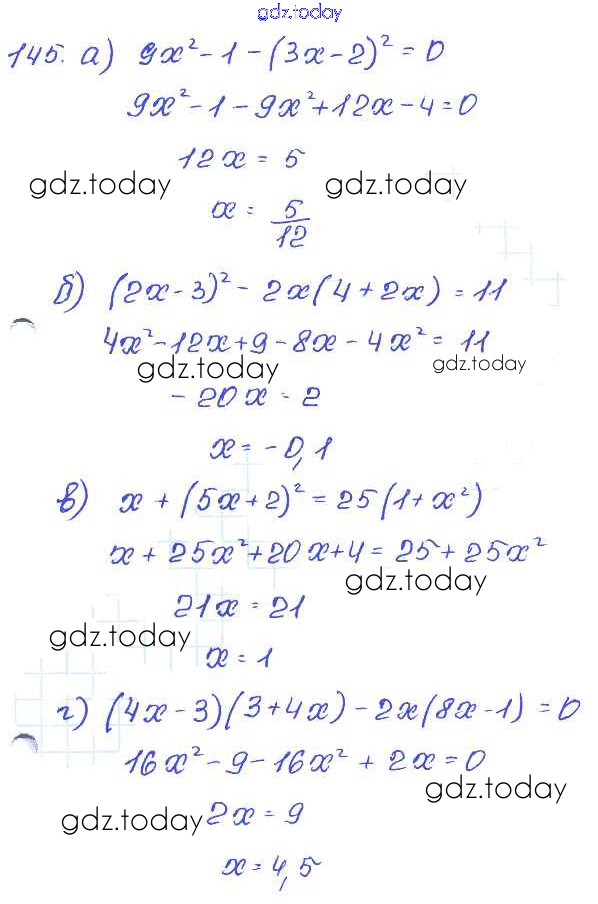 gdz.today
145. а) 9x² - 1 - (3x - 2)² = 0
9x² - 1 - 9x² + 12x - 4 = 0
12x = 5
gdz.today gdz.today
x = 5/12
б) (2x - 3)² - 2x(4 + 2x) = 11
4x² - 12x + 9 - 8x - 4x² = 11
gdz.today gdz.today
- 20x = 2
x = -0,1
в) x + (5x + 2)² = 25(1 + x²)
x + 25x² + 20x + 4 = 25 + 25x²
gdz.today
21x = 21
gdz.today
x = 1
г) (4x - 3)(3 + 4x) - 2x(8x - 1) = 0
16x² - 9 - 16x² + 2x = 0
gdz.today
gdz.today 2x = 9
x = 4,5